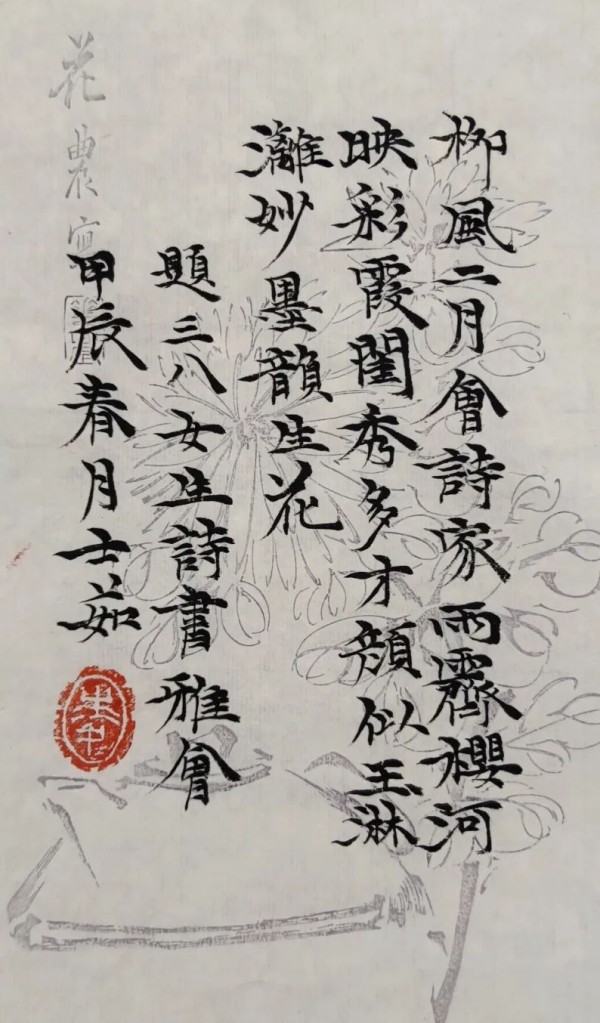 柳風二月會詩家雨霽櫻河
映彩霞閨秀多才顏似玉淋
灕妙墨韻生花
題三八女生詩書雅會
甲辰春月士茹
花農寫